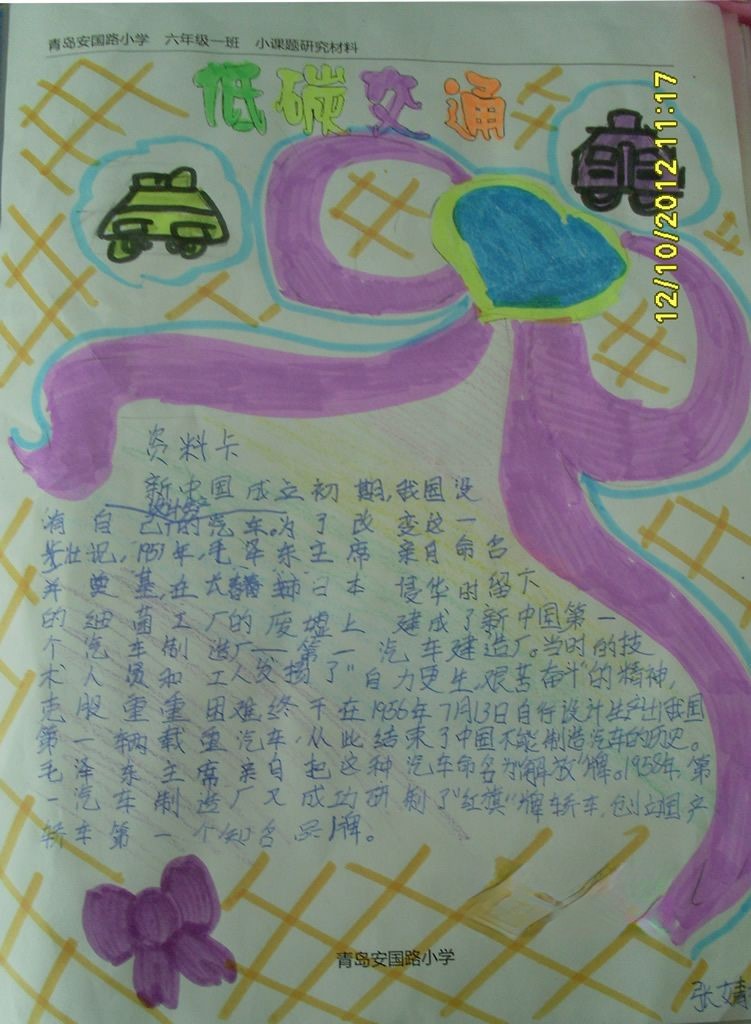 青岛安国路小学 六年级一班 小课题研究材料
低碳交通
12/10/2012 11:17
资料卡
新中国成立初期,我国没
有自己的汽车。为了改变这一
状况,1953年,毛泽东主席亲自命名
并奠基,在日本侵华时留下
的细菌工厂的废墟上建成了新中国第一
个汽车制造厂——第一汽车建造厂。当时的技
术人员和工人发扬了“自力更生,艰苦奋斗”的精神,
克服重重困难终于在1956年7月13日自行设计生产出我国
第一辆载重汽车,从此结束了中国不能制造汽车的历史。
毛泽东主席亲自把这种汽车命名为“解放”牌。1958年,第
一汽车制造厂又成功研制了“红旗”牌轿车,创立国产
轿车第一个知名品牌。
青岛安国路小学
张婧